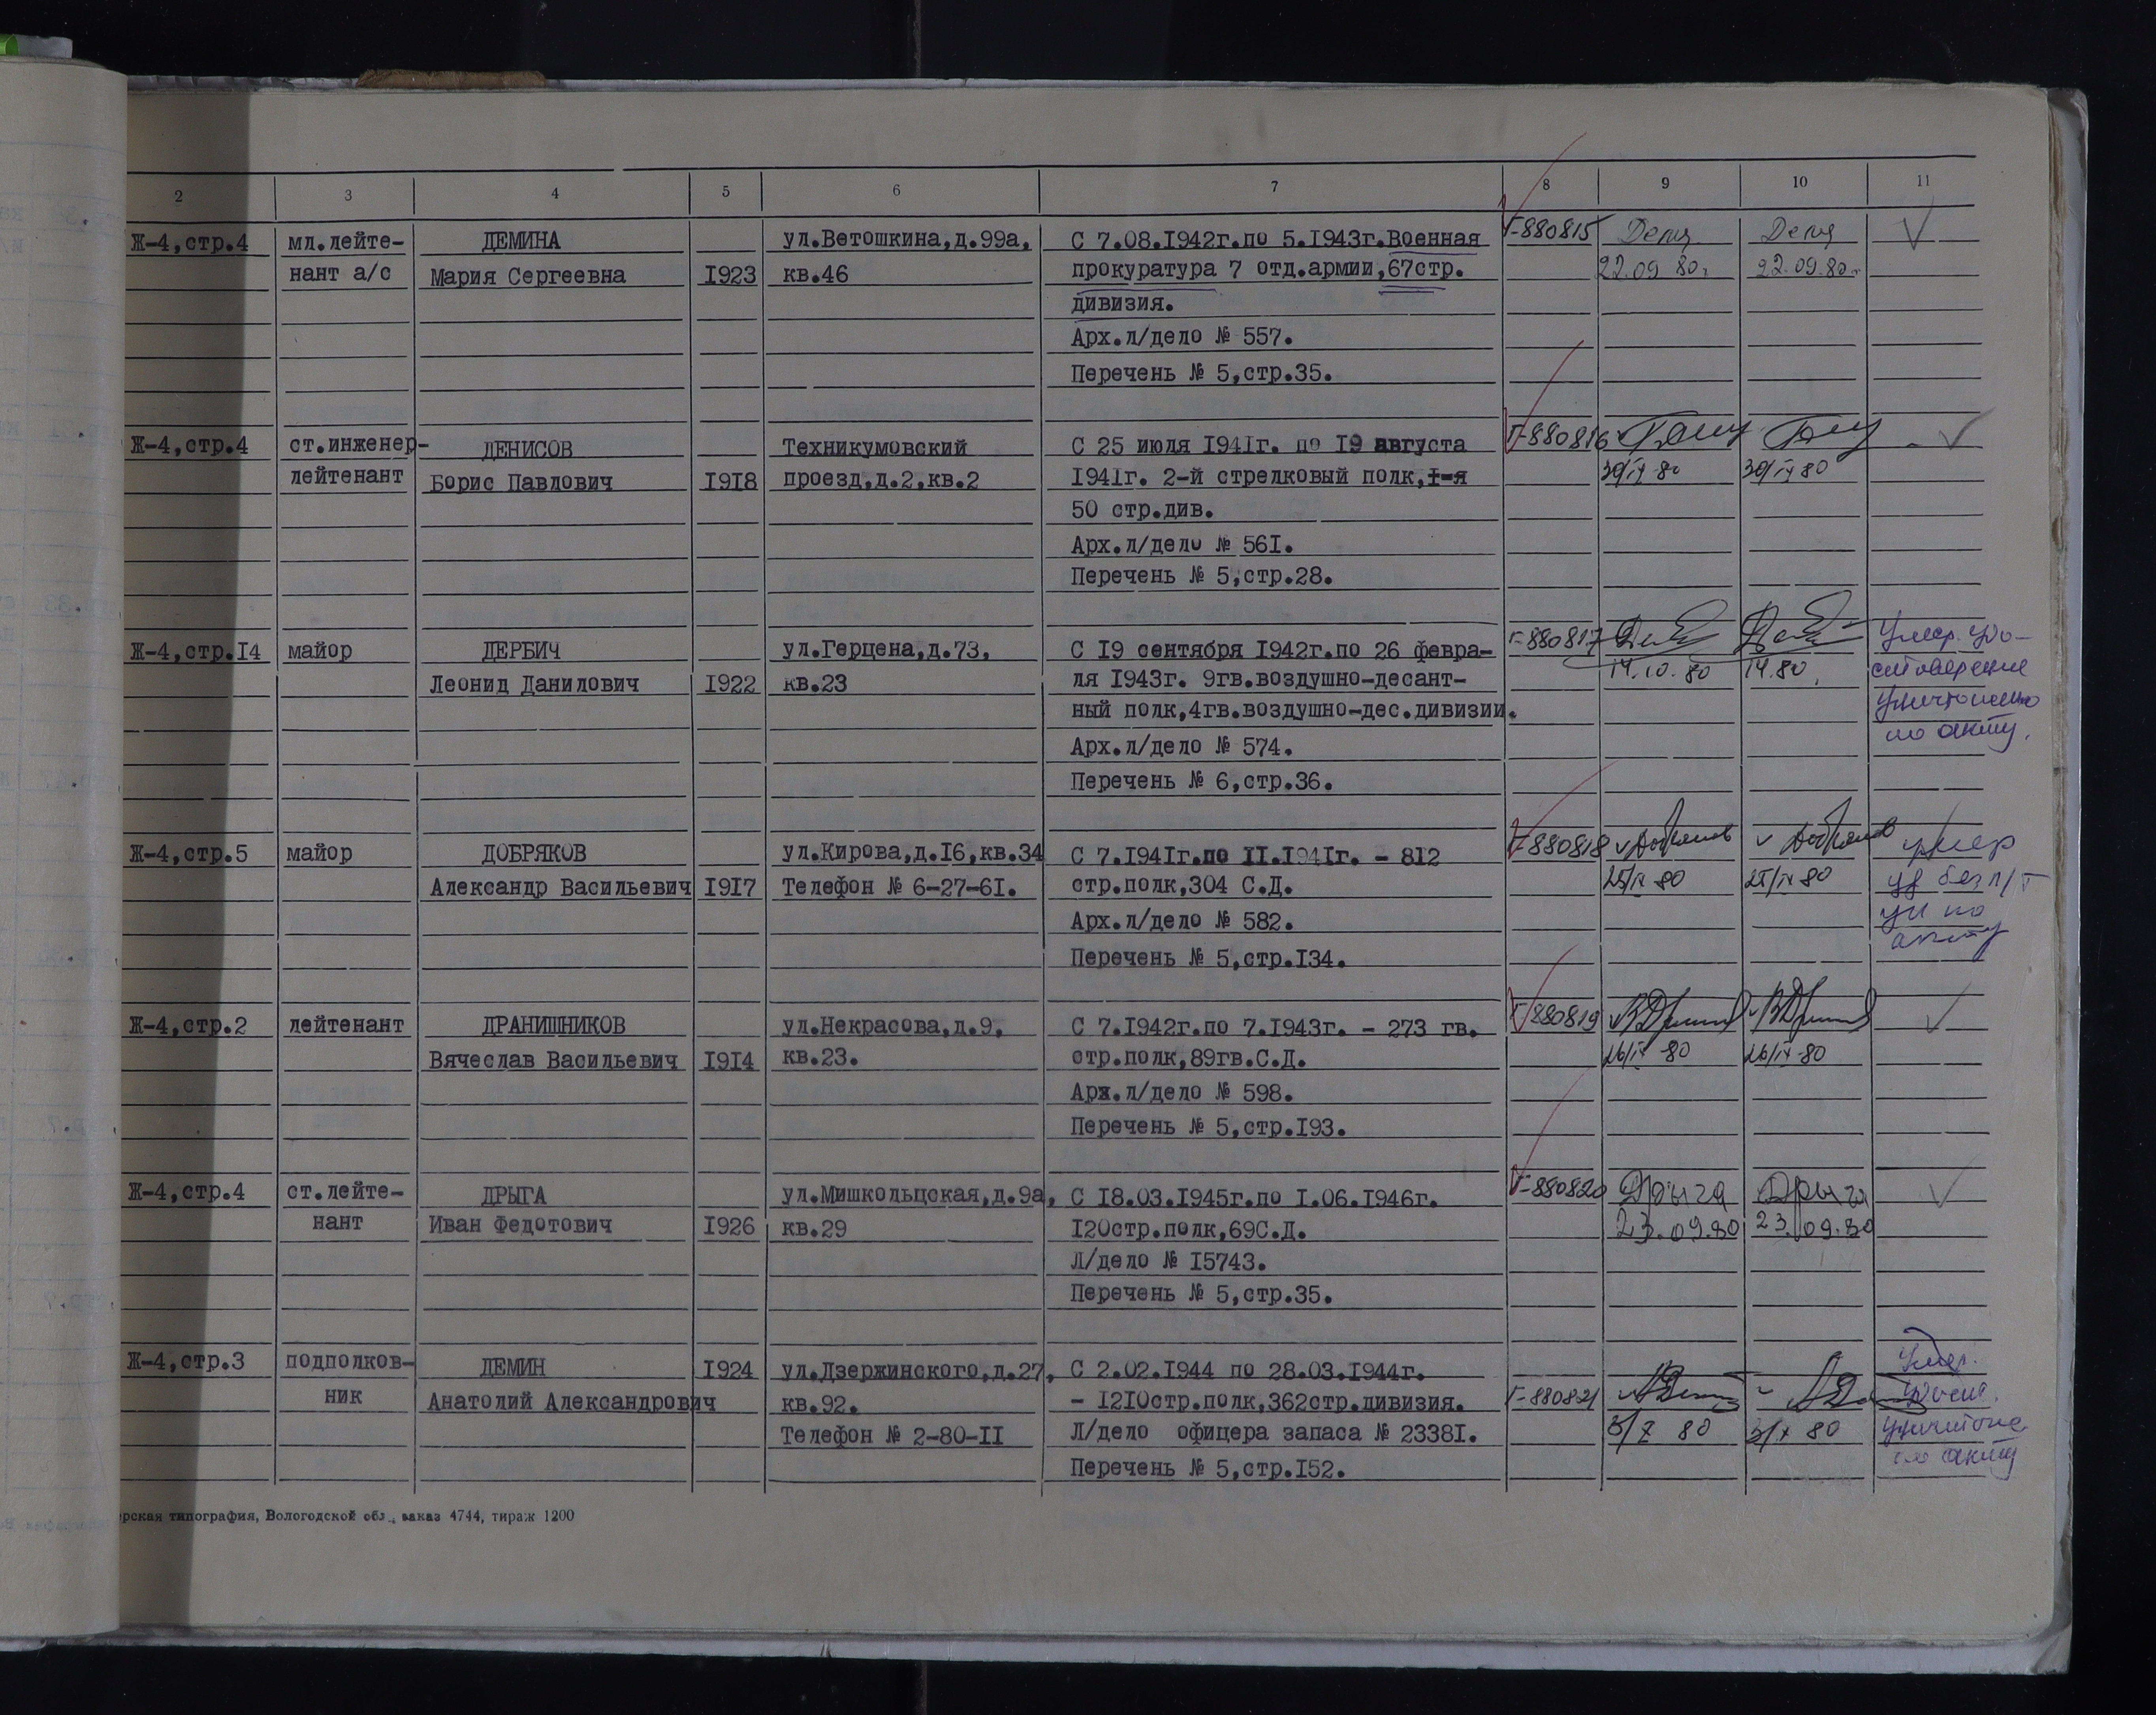 2 3 4 5 6 7 8 9 10 11
Ж-4,стр.4 мл.лейте- ДЕМИНА ул.Ветошкина,д.99а, С 7.08.1942г.по 5.1943г.Военная Г-880815
нант а/с Мария Сергеевна 1923 кв.46 прокуратура 7 отд.армии,67стр. 22.09 80г. 22.09.80г.
дивизия.
Арх.л/дело № 557.
Перечень № 5,стр.35.
Ж-4,стр.4 ст.инженер- ДЕНИСОВ Техникумовский С 25 июля 1941г. по 19 августа Г-880816
лейтенант Борис Павлович 1918 проезд,д.2,кв.2 1941г. 2-й стрелковый полк,1-я 30/IX 80 30/IX 80
50 стр.див.
Арх.л/дело № 561.
Перечень № 5,стр.28.
Ж-4,стр.14 майор ДЕРБИЧ ул.Герцена,д.73, С 19 сентября 1942г.по 26 февра- Г-880817 Умер. Удо-
Леонид Данилович 1922 кв.23 ля 1943г. 9гв.воздушно-десант- 14.10.80 14.80. стоверение
ный полк,4гв.воздушно-дес.дивизии. уничтожено
Арх.л/дело № 574. по акту.
Перечень № 6,стр.36.
Ж-4,стр.5 майор ДОБРЯКОВ ул.Кирова,д.16,кв.34 С 7.1941г.по 11.1941г. - 812 Г-880818 Добряков Добряков умер
Александр Васильевич 1917 Телефон № 6-27-61. стр.полк,304 С.Д. 25/IX 80 25/IX 80 уд без л/г
Арх.л/дело № 582. ун по
Перечень № 5,стр.134. акту
Ж-4,стр.2 лейтенант ДРАНИШНИКОВ ул.Некрасова,д.9, С 7.1942г.по 7.1943г. - 273 гв. Г-880819
Вячеслав Васильевич 1914 кв.23. стр.полк,89гв.С.Д. 26/IX 80 26/IX 80
Арх.л/дело № 598.
Перечень № 5,стр.193.
Ж-4,стр.4 ст.лейте- ДРЫГА ул.Мишкольцская,д.9а, С 18.03.1945г.по 1.06.1946г. Г-880820 Дрыга Дрыга
нант Иван Федотович 1926 кв.29 120стр.полк,69С.Д. 23.09.80 23.09.80
Л/дело № 15743.
Перечень № 5,стр.35.
Ж-4,стр.3 подполков- ДЕМИН 1924 ул.Дзержинского,д.27, С 2.02.1944 по 28.03.1944г. Умер.
ник Анатолий Александрович кв.92. - 1210стр.полк,362стр.дивизия. Г-880821 Удост.
Телефон № 2-80-11 Л/дело офицера запаса № 23381. 3/X 80 3/X 80 уничтоже
Перечень № 5,стр.152. по акту
рская типография, Вологодской обл., заказ 4744, тираж 1200